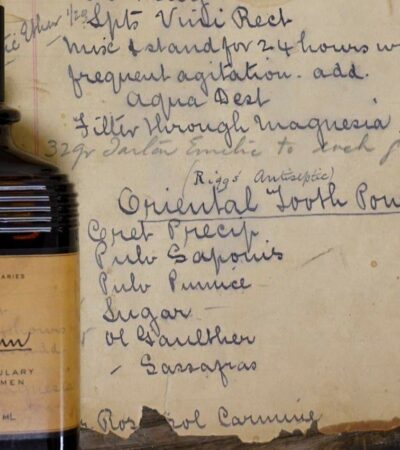 Ether 1/2
Spts Vini Rect
Misc & stand for 24 hours w
frequent agitation. add.
Aqua Dest
Filter through Magnesia
32 gr Tartar Emetic to each
(Riggs' Antiseptic)
Oriental Tooth Pow
Cret Precip
Pulv Saponis
Pulv Pumice
Sugar
Ol Gaulther
" Sassafras
Ros
Carmine
ARIES
ULARY
MEN
ML